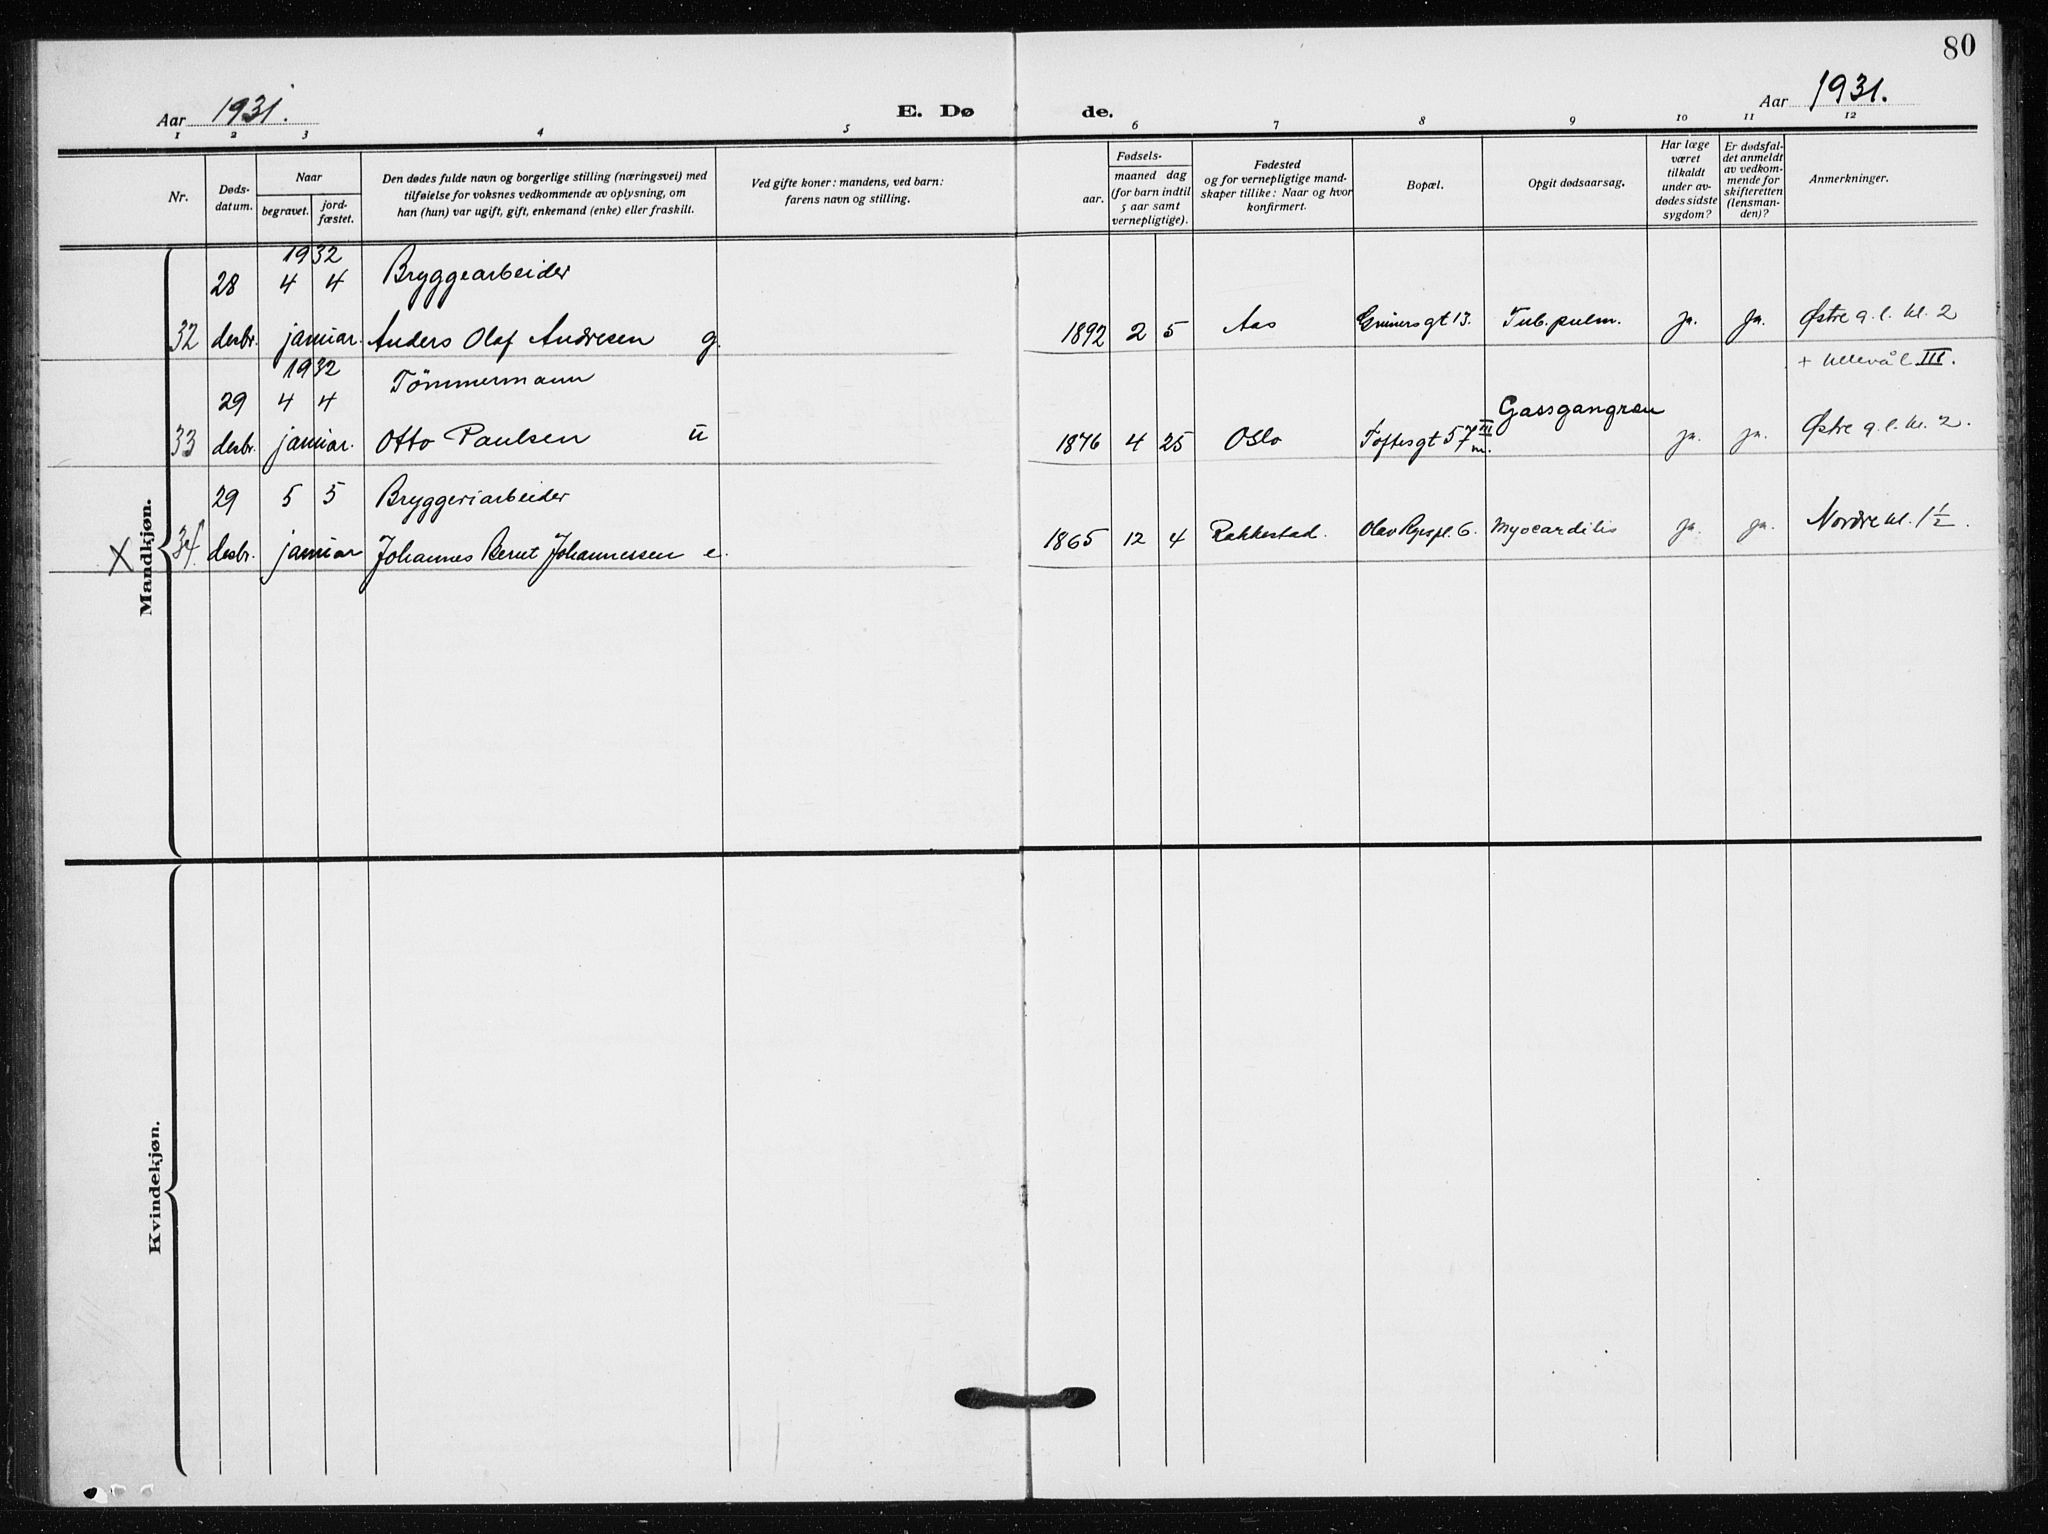 80
Aar 1931.
E. Døde.
Aar 1931.
1 2 3 4 5 6 7 8 9 10 11 12
Nr.
Døds-
datum.
Naar
begravet.
jord-
fæstet.
Den dødes fulde navn og borgerlige stilling (næringsvei) med
tilføielse for voksnes vedkommende av oplysning, om
han (hun) var ugift, gift, enkemand (enke) eller fraskilt.
Ved gifte koner: mandens, ved barn:
farens navn og stilling.
Fødsels-
aar.
maaned dag
(for barn indtil
5 aar samt
vernepligtige).
Fødested
og for vernepligtige mand-
skaper tillike: Naar og hvor
konfirmert.
Bopæl.
Opgit dødsaarsag.
Har læge
været
tilkaldt
under av-
dødes sidste
sygdom?
Er dødsfal-
det anmeldt
av vedkom-
mende for
skifteretten
(lensman-
den)?
Anmerkninger.
Mandkjøn.
1932
28 4 4 Bryggearbeider
32 desbr. januar. Anders Olaf Andresen g. 1892 2 5 Aas Grünersgt 13. Tub. pulm. ja. ja. Østre g. l. kl. 2
+ Ullevål III.
1932
29 4 4 Tømmermann
33 desbr. januar. Otto Paulsen u 1876 4 25 Oslo Toftesgt 57 III m. Gassgangren ja. ja. Østre g. l. kl. 2.
29 5 5 Bryggeriarbeider
X 34. desbr. januar Johannes Bernt Johannessen e. 1865 12 4 Rakkestad. Olav Ryespl. 6. Myocarditis ja. ja. Nordre kl. 1 1/2.
Kvindekjøn.